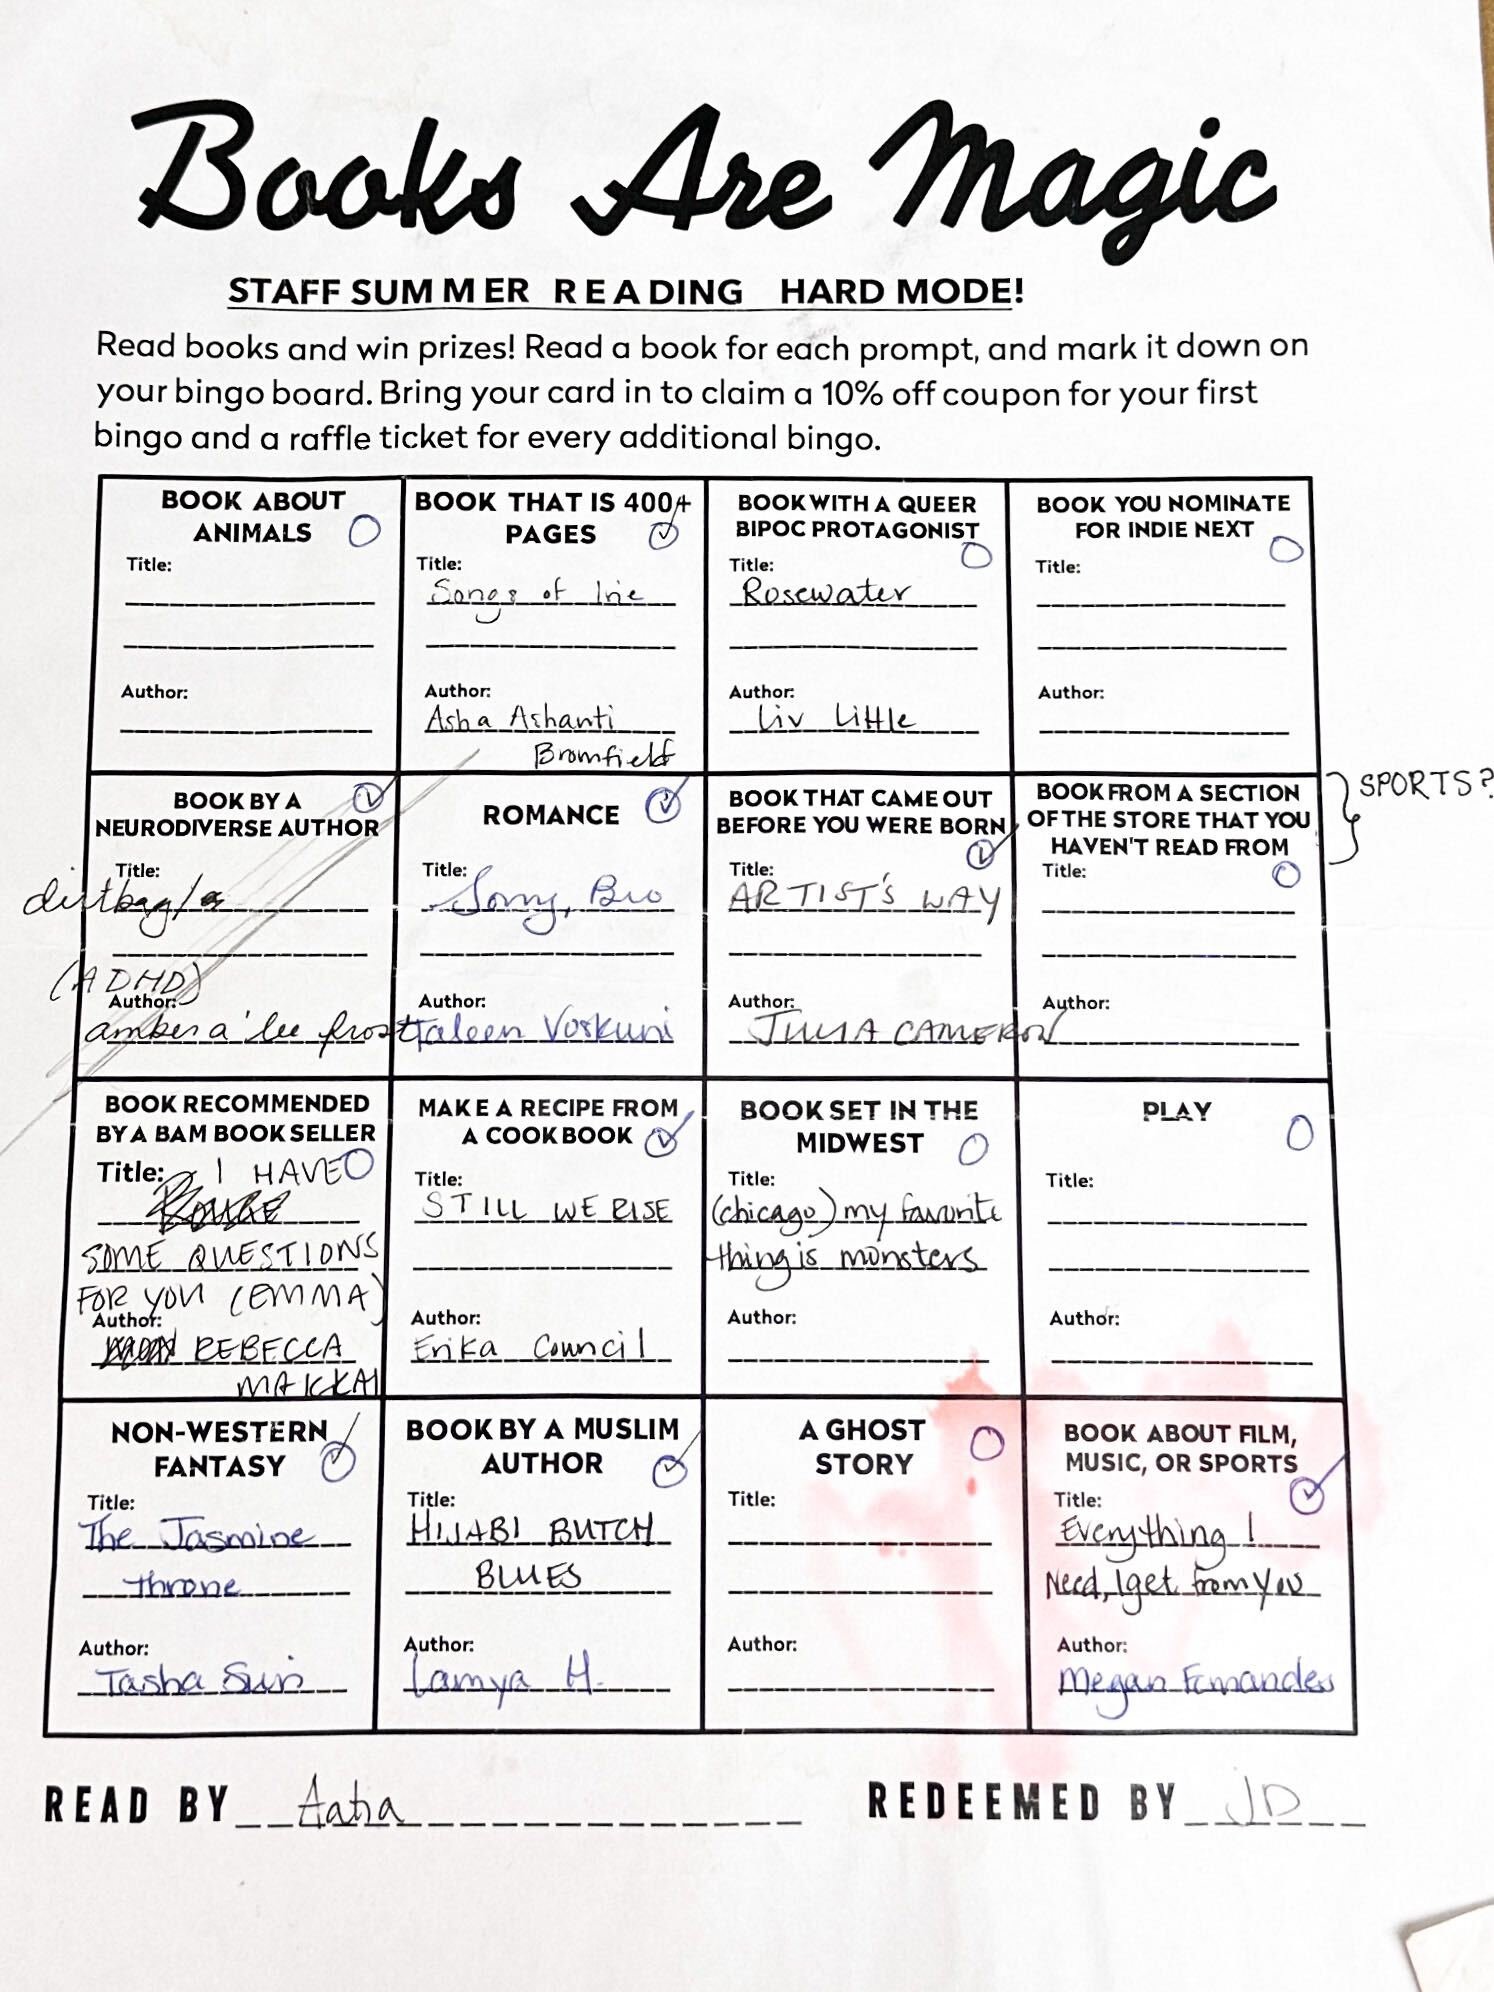 Books Are Magic
STAFF SUMMER READING HARD MODE!
Read books and win prizes! Read a book for each prompt, and mark it down on
your bingo board. Bring your card in to claim a 10% off coupon for your first
bingo and a raffle ticket for every additional bingo.
BOOK ABOUT
ANIMALS
Title:
Author:
BOOK THAT IS 400+
PAGES
Title:
Songs of Irie
Author:
Asha Ashanti
Bromfield
BOOK WITH A QUEER
BIPOC PROTAGONIST
Title:
Rosewater
Author:
Liv Little
BOOK YOU NOMINATE
FOR INDIE NEXT
Title:
Author:
BOOK BY A
NEURODIVERSE AUTHOR
Title:
dirtbag/
(ADHD)
Author:
amber a'lee frost
ROMANCE
Title:
Sorry, Bro
Author:
Taleen Voskuni
BOOK THAT CAME OUT
BEFORE YOU WERE BORN
Title:
ARTIST'S WAY
Author:
JULIA CAMERON
BOOK FROM A SECTION
OF THE STORE THAT YOU
HAVEN'T READ FROM
SPORTS?
Title:
Author:
BOOK RECOMMENDED
BY A BAM BOOKSELLER
Title: I HAVE
SOME QUESTIONS
FOR YOU (EMMA)
Author:
REBECCA
MAKKAI
MAKE A RECIPE FROM
A COOKBOOK
Title:
STILL WE RISE
Author:
Erika Council
BOOK SET IN THE
MIDWEST
Title:
(chicago) my favorite
thing is monsters
Author:
PLAY
Title:
Author:
NON-WESTERN
FANTASY
Title:
The Jasmine
Throne
Author:
Tasha Suri
BOOK BY A MUSLIM
AUTHOR
Title:
HIJABI BUTCH
BLUES
Author:
Lamya H.
A GHOST
STORY
Title:
Author:
BOOK ABOUT FILM,
MUSIC, OR SPORTS
Title:
Everything I
Need, I get from You
Author:
Megan Fernandes
READ BY
REDEEMED BY JD